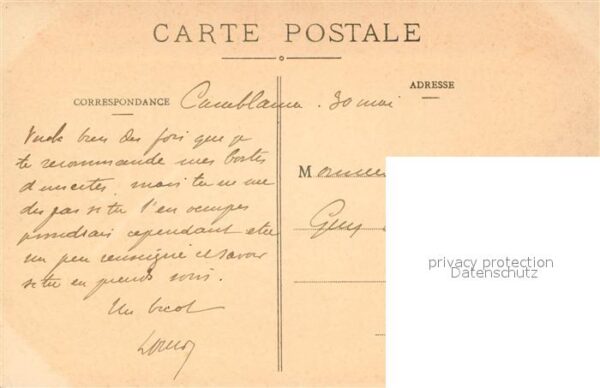 CARTE POSTALE
ADRESSE
CORRESPONDANCE Casablanca. 30 mai
bien des fois que je
te recommande mes boites
d'insectes, mais tu ne me
dis pas si tu t'en occupes
voudrais cependant etre
un peu renseigné et savoir
si tu en prends soin.
Un bécot
M
Guy
privacy protection
Datenschutz